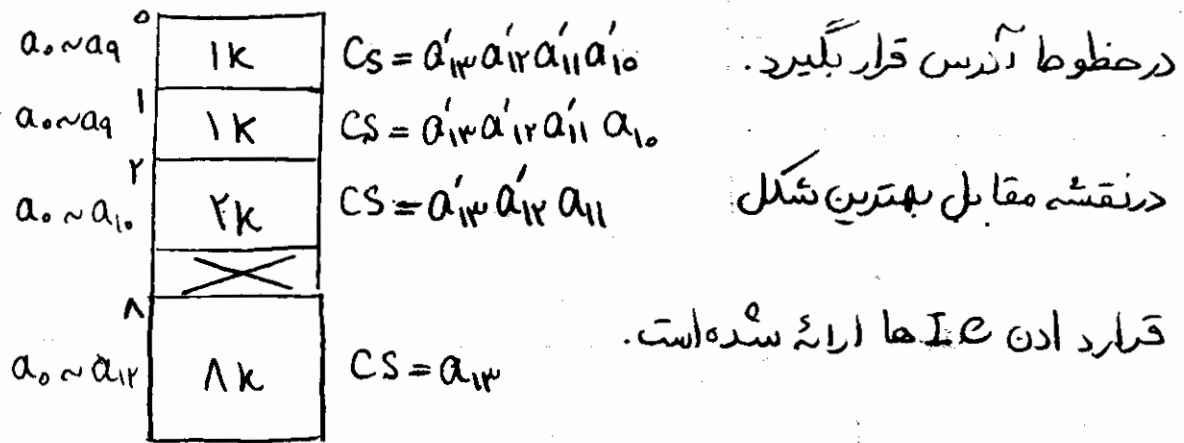 در خطوط آدرس قرار بگیرد.
در نقشه مقابل بهترین شکل
قرار دادن IC ها ارائه شده است.
۰
a₀~a₉ ۱K CS = a'₁₃a'₁₂a'₁₁a'₁₀
۱
a₀~a₉ ۱K CS = a'₁₃a'₁₂a'₁₁a₁₀
۲
a₀~a₁₀ ۲K CS = a'₁₃a'₁₂a₁₁
۸
a₀~a₁₂ ۸K CS = a₁₃